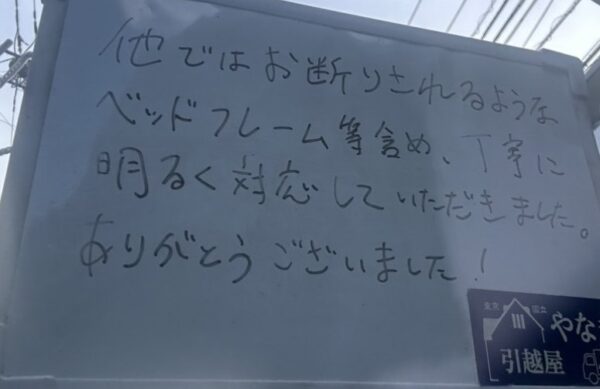 他ではお断りされるような
ベッドフレーム等含め、丁寧に
明るく対応していただきました。
ありがとうございました!
東京 国立
やな
引越屋